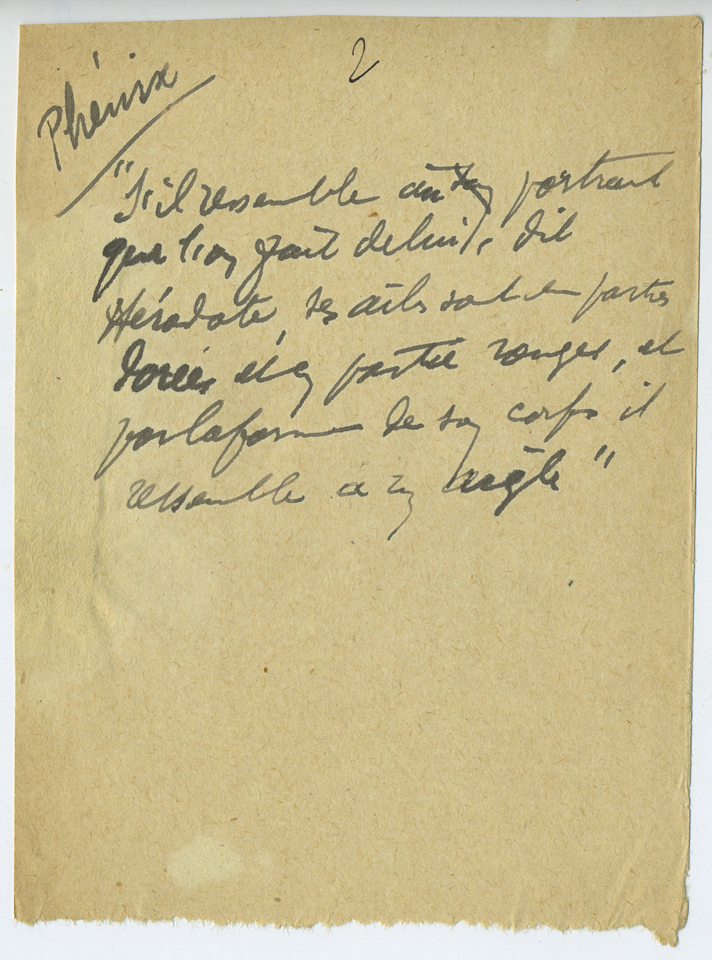 2
Phénix
"S'il ressemble au portrait
que l'on fait de lui, dit
Hérodote, ses ailes sont en parties
dorées et en partie rouges, et
par la forme de son corps il
ressemble à un aigle"